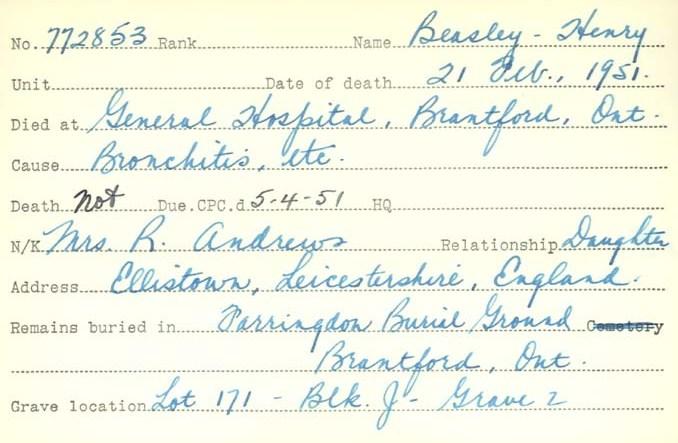 No. 772853 Rank Name Beasley - Henry
Unit Date of death 21 Feb., 1951.
Died at General Hospital, Brantford, Ont.
Cause Bronchitis, etc.
Death not Due.CPC.d. 5-4-51 HQ
N/K Mrs. R. Andrews Relationship Daughter
Address Ellistown, Leicestershire, England.
Remains buried in Farringdon Burial Ground Cemetery
Brantford, Ont.
Grave location Lot 171 - Blk. J - Grave 2